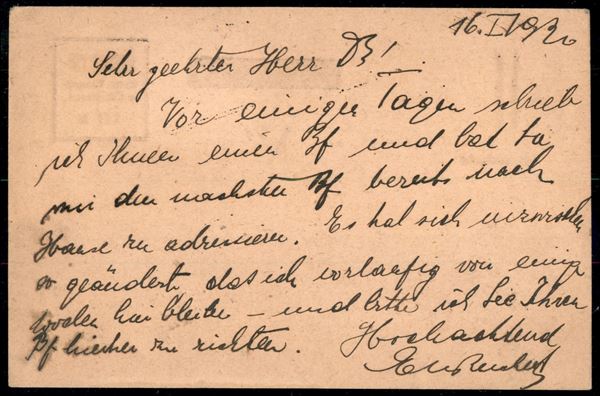 Sehr geehrter Herr Dr!
Vor einigen Tagen schrieb
ich Ihnen einen Bf und bat Sie
mir den nächsten Bf bereits nach
Hause zu adressieren. Es hat sich inzwischen
so geändert das ich vorläufig von einig
Wochen hier bleibe – und bitte ich Sie Ihren
Bf hierher zu richten. Hochachtend